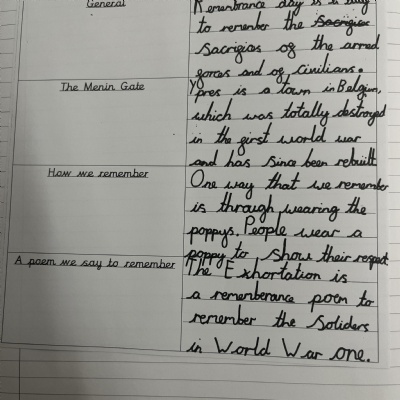 General
Remembrance day is a day
to remember the Sacrigise
Sacrigies og the armed
gorces and og civilians.
The Menin Gate
Ypres is a town in Belgium,
which was totally destroyed
in the girst world war
and has since been rebuilt
How we remember
One way that we remember
is through wearing the
poppys. People wear a
poppy to show their respect
A poem we say to remember
The Exhortation is
a rememberance poem to
remember the Soliders
in World War one.